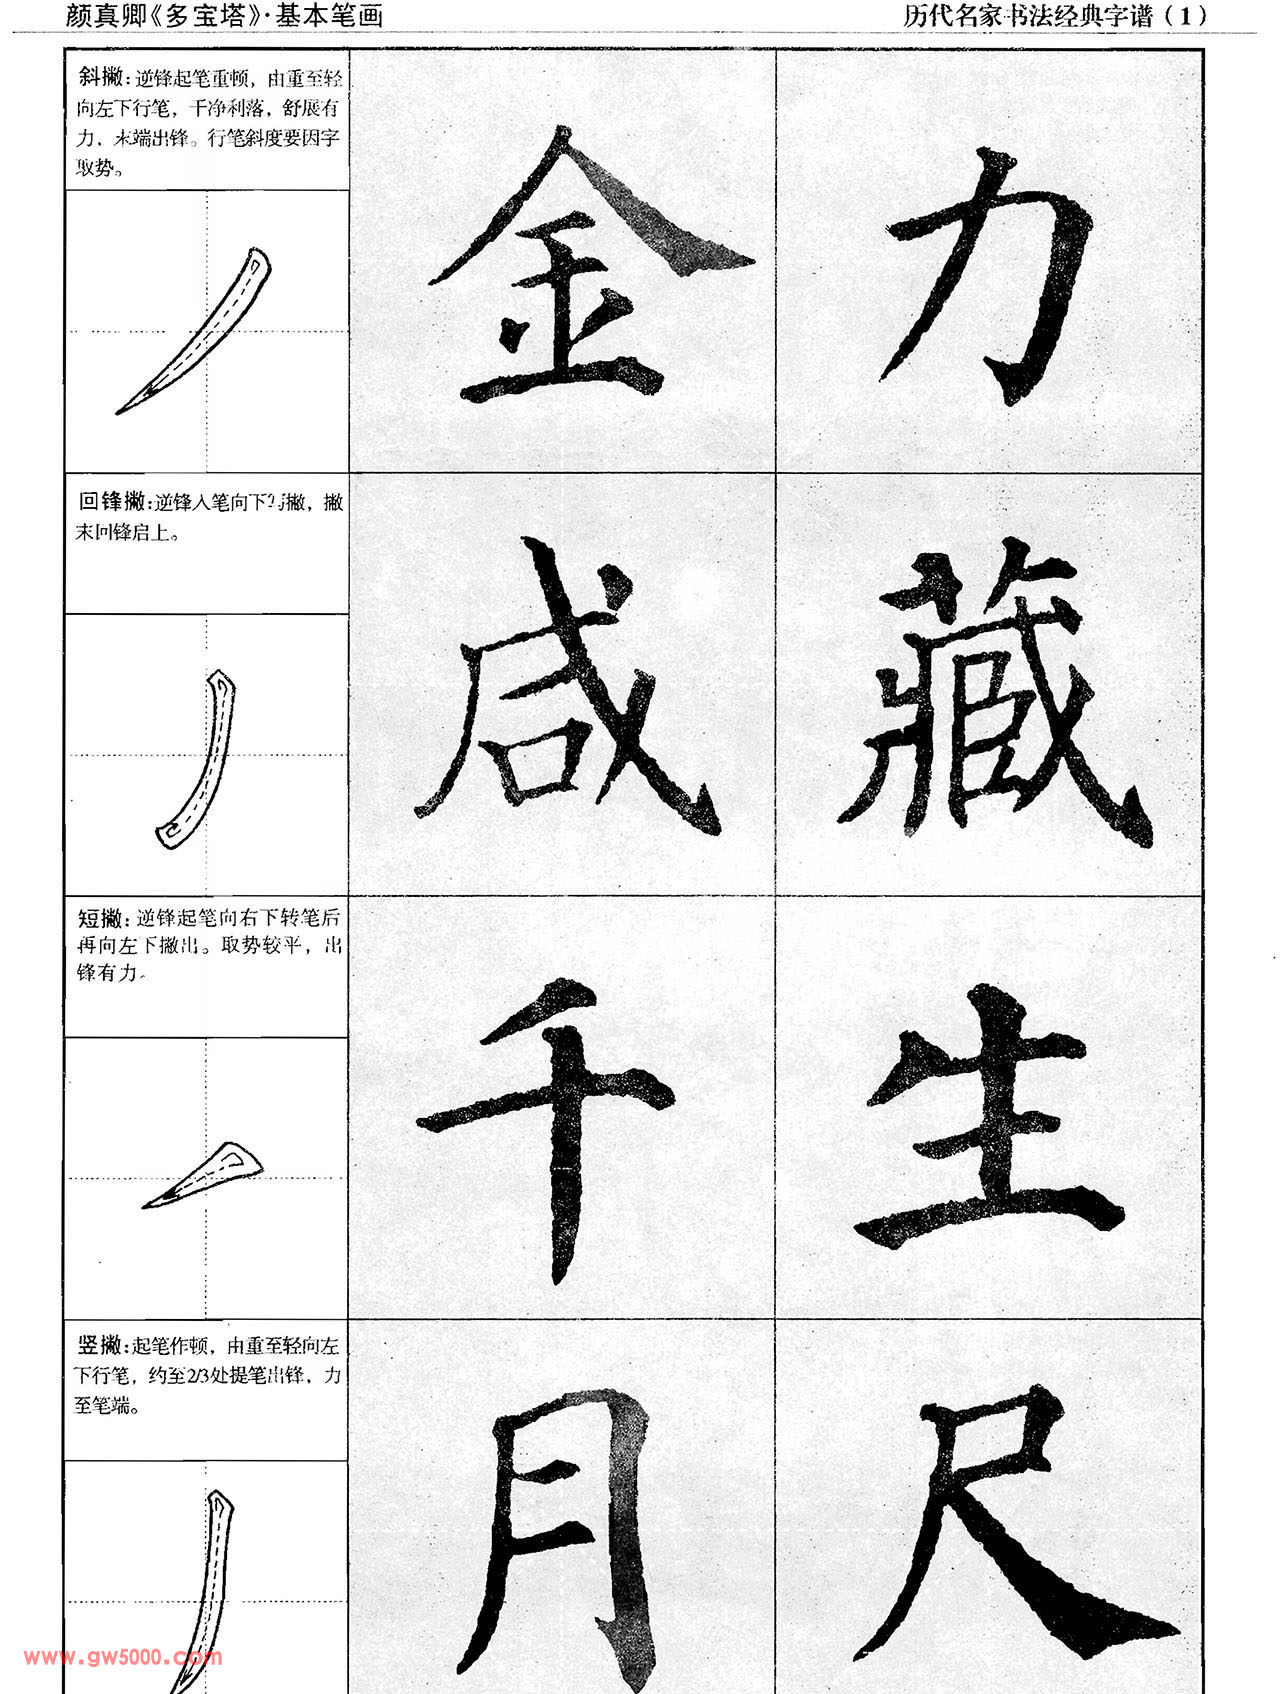 颜真卿《多宝塔》·基本笔画
历代名家书法经典字谱（1）
斜撇：逆锋起笔重顿，由重至轻
向左下行笔，干净利落，舒展有
力，末端出锋。行笔斜度要因字
取势。
金 力
回锋撇：逆锋入笔向下行撇，撇
末回锋启上。
咸 藏
短撇：逆锋起笔向右下转笔后
再向左下撇出。取势较平，出
锋有力。
千 生
竖撇：起笔作顿，由重至轻向左
下行笔，约至2/3处提笔出锋，力
至笔端。
月 尺
www.gw5000.com